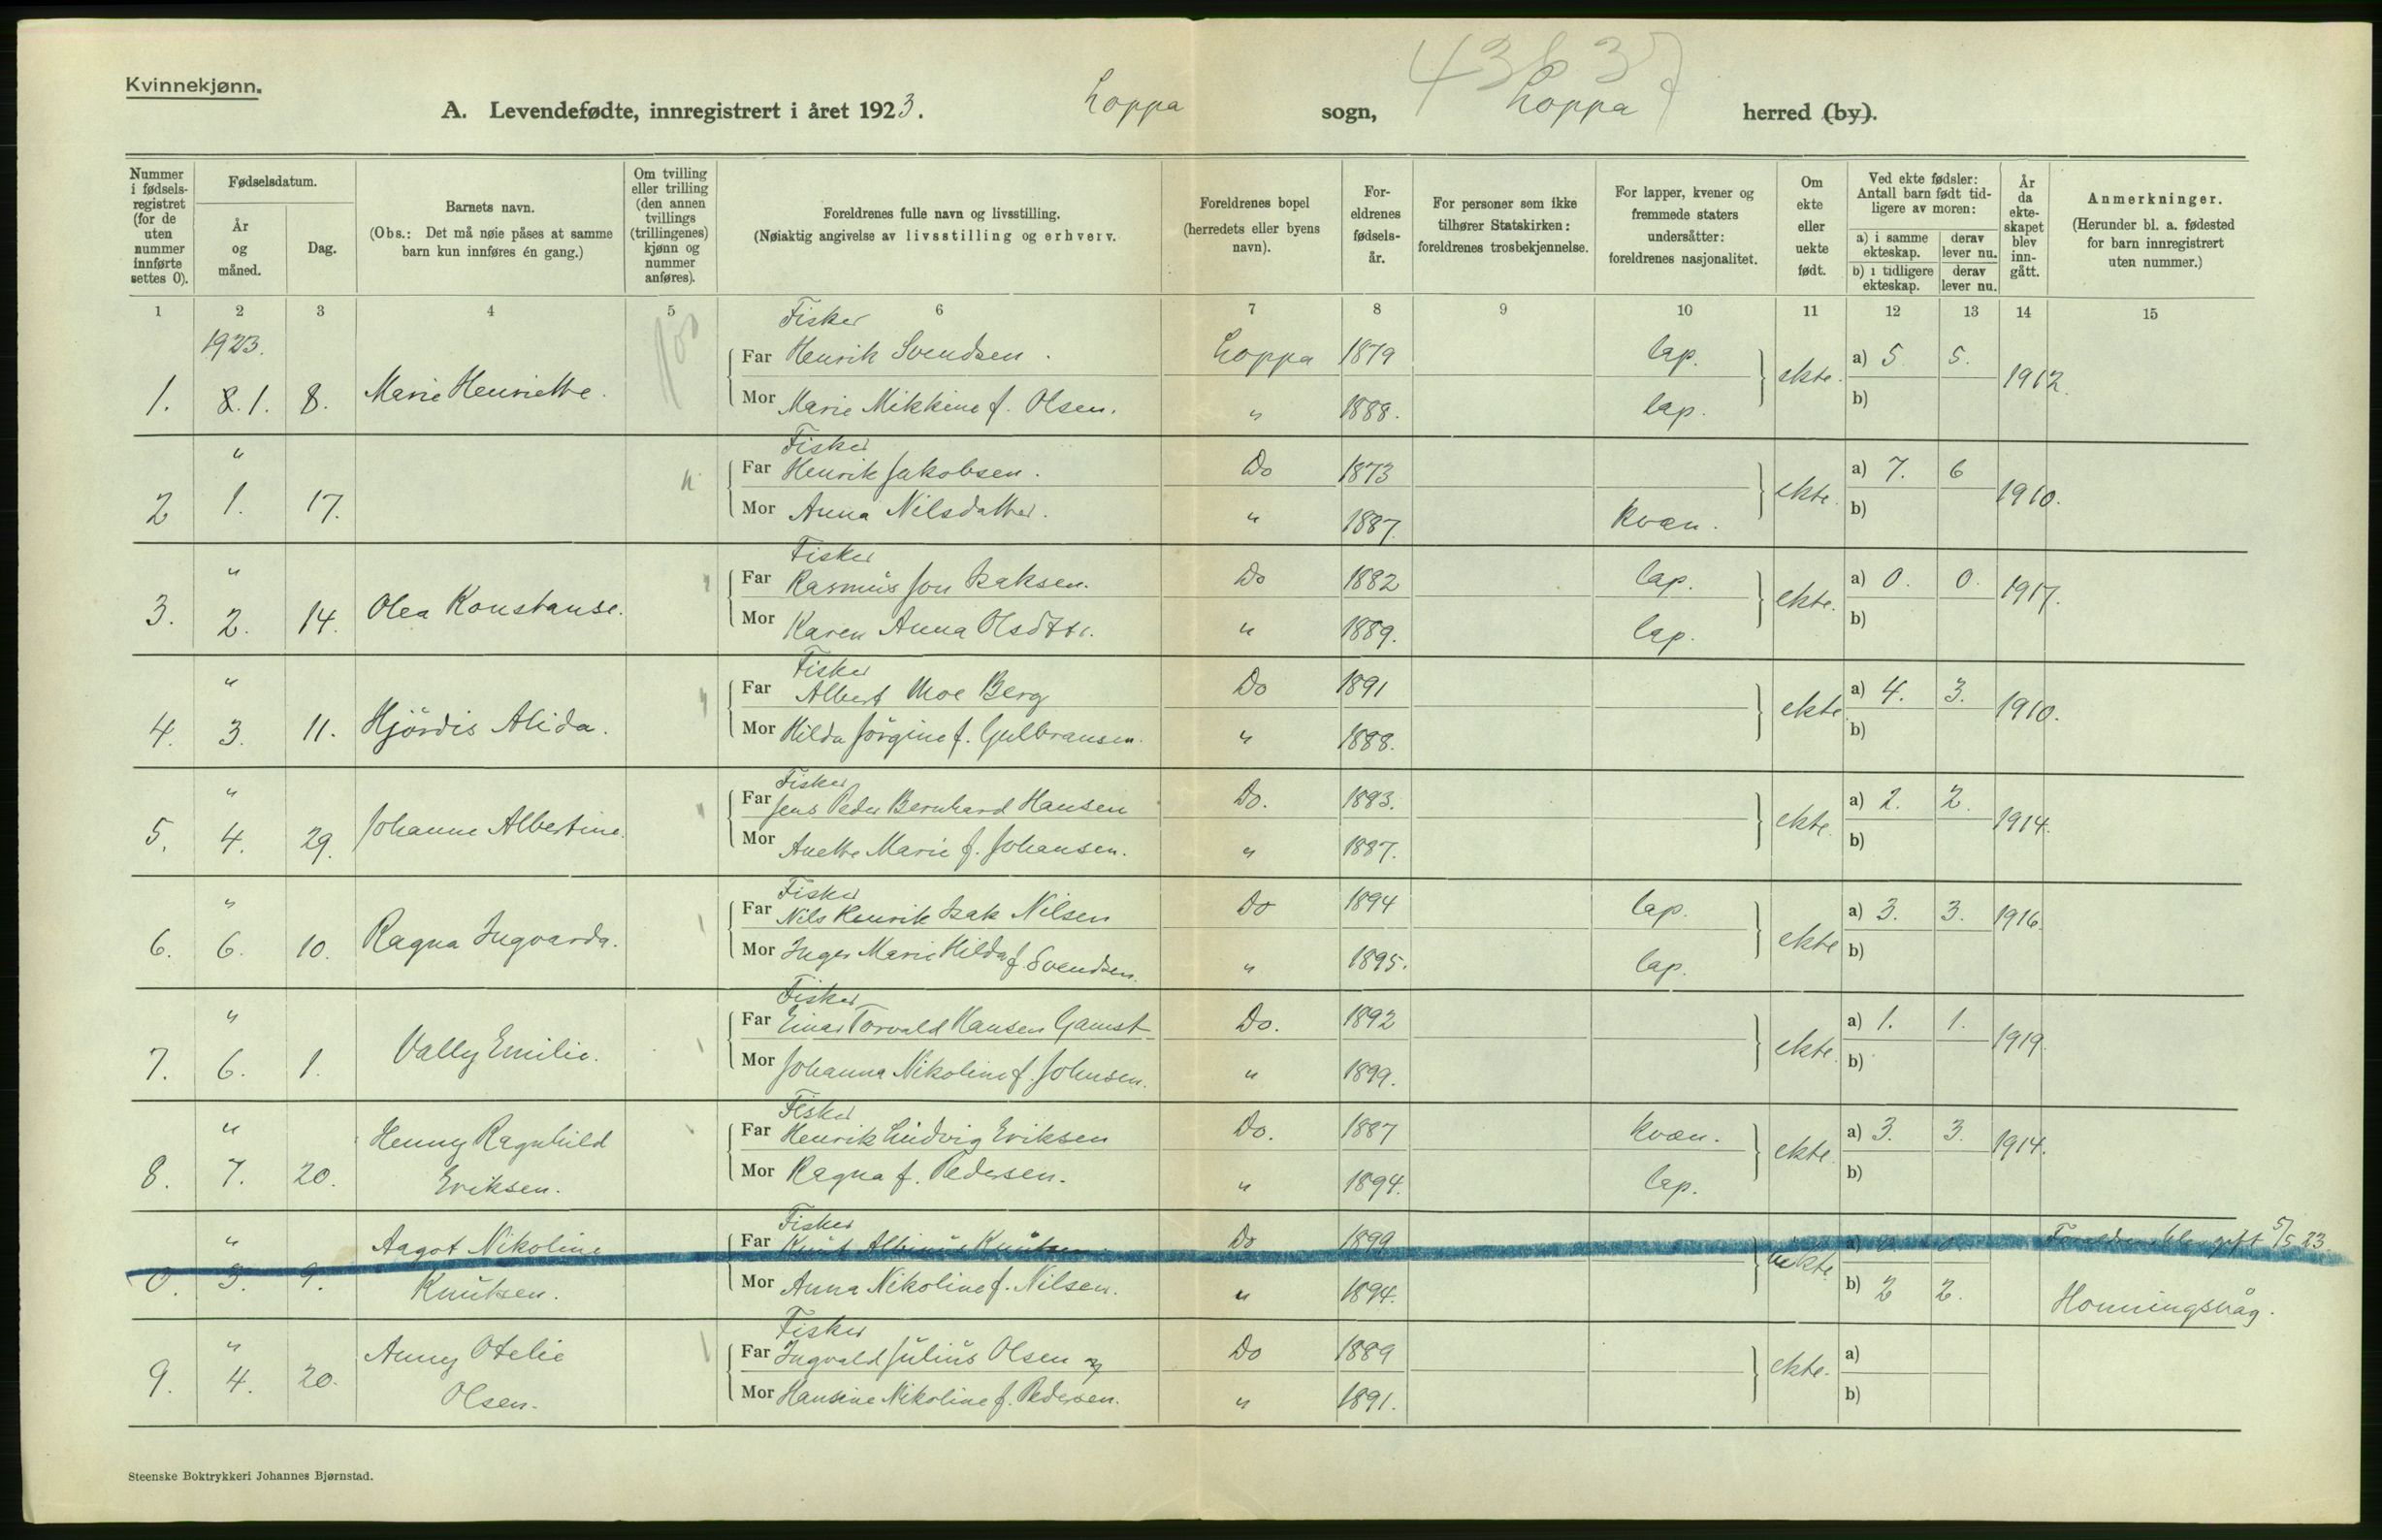 Kvinnekjønn.
A. Levendefødte, innregistrert i året 1923. Loppa sogn, Loppa herred (by).
43 63
Nummer i fødselsregistret (for de uten nummer innførte settes 0).
Fødselsdatum.
År og måned.
Dag.
Barnets navn.
(Obs.: Det må nøie påses at samme barn kun innføres én gang.)
Om tvilling eller trilling (den annen tvillings (trillingenes) kjønn og nummer anføres).
Foreldrenes fulle navn og livsstilling.
(Nøiaktig angivelse av livsstilling og erhverv.
Foreldrenes bopel (herredets eller byens navn).
Foreldrenes fødselsår.
For personer som ikke tilhører Statskirken: foreldrenes trosbekjennelse.
For lapper, kvener og fremmede staters undersåtter: foreldrenes nasjonalitet.
Om ekte eller uekte født.
Ved ekte fødsler: Antall barn født tidligere av moren:
a) i samme ekteskap. derav lever nu.
b) i tidligere ekteskap. derav lever nu.
År da ekteskapet blev inngått.
Anmerkninger.
(Herunder bl. a. fødested for barn innregistrert uten nummer.)
1 2 3 4 5 6 7 8 9 10 11 12 13 14 15
1923.
Fisker
Far Henrik Svendsen. Loppa 1879 lap. a) 5 5.
1. 8. 1. 8. Marie Henriette. ekte. 1912.
Mor Marie Mikkine f. Olsen. " 1888. lap. b)
Fisker
" Far Henrik Jakobsen. Do 1873 a) 7. 6
2 1. 17. ekte. 1910.
Mor Anna Nilsdatter. " 1887. kvæn. b)
Fisker
" Far Rasmus Jon Isaksen. Do 1882 lap. a) 0. 0.
3. 2. 14. Olea Konstanse. ekte. 1917.
Mor Karen Anna Olsdtr. " 1889. lap. b)
Fisker
" Far Albert Moe Berg Do 1891 a) 4. 3.
4. 3. 11. Hjördis Alida. ekte. 1910.
Mor Hilda Jörgine f. Gulbransen. " 1888. b)
Fisker
" Far Jens Peder Bernhard Hansen Do. 1893. a) 2. 2.
5. 4. 29. Johanne Albertine. ekte. 1914.
Mor Anette Marie f. Johansen. " 1887. b)
Fisker
" Far Nils Henrik Isak Nilsen Do 1894 lap. a) 3. 3. 1916.
6. 6. 10. Ragna Ingvarda. ekte
Mor Inger Marie Hilda f. Svendsen. " 1895. lap. b)
Fisker
" Far Einar Torvald Hansen Gamst Do. 1892 a) 1. 1.
7. 6. 1. Vally Emilie. ekte. 1919.
Mor Johanna Nikoline f. Johnsen. " 1899. b)
Fisker
" Henny Ragnhild Far Henrik Ludvig Eriksen Do. 1887 kvæn. a) 3. 3. 1914.
8. 7. 20. Eriksen. ekte.
Mor Ragna f. Pedersen. " 1894. lap. b)
Fisker
" Aagot Nikoline Far Knut Albinus Knutsen Do 1899 a) 0. 0. Foreldrene blev gift 5/5 23.
0. 3. 9. Knutsen. uekte
Mor Anna Nikoline f. Nilsen. " 1894. b) 2 2. Honningsvåg.
Fisker
" Anny Otelie Far Ingvald Julius Olsen og Do 1889 a)
9. 4. 20. Olsen. ekte.
Mor Hansine Nikoline f. Pedersen. " 1891. b)
Steenske Boktrykkeri Johannes Bjørnstad.